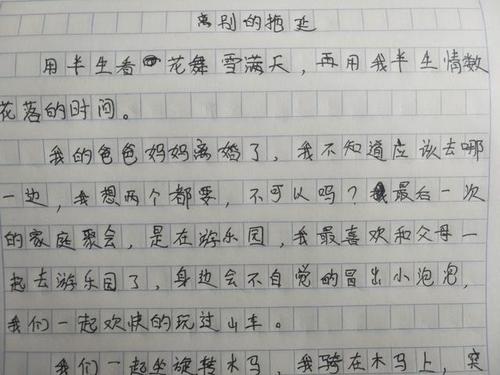 离别的拖延
用半生看花舞雪满天，再用我半生情数
花落的时间。
我的爸爸妈妈离婚了，我不知道应该去哪
一边，我想两个都要，不可以吗？最后一次
的家庭聚会，是在游乐园，我最喜欢和父母一
起去游乐园了，身边会不自觉的冒出小泡泡，
我们一起欢快的玩过山车。
我们一起坐旋转木马，我骑在木马上，突